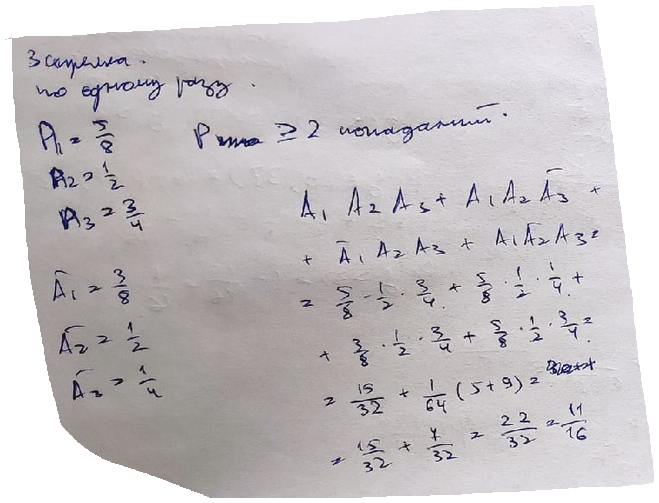 3 стрелка.
по одному разу.
A₁ = 5/8
P ≥ 2 попаданий.
A₂ = 1/2
A₃ = 3/4
A₁ A₂ A₃ + A₁ A₂ Ā₃ +
+ Ā₁ A₂ A₃ + A₁ Ā₂ A₃ =
Ā₁ = 3/8
= 5/8 · 1/2 · 3/4 + 5/8 · 1/2 · 1/4 +
Ā₂ = 1/2
+ 3/8 · 1/2 · 3/4 + 5/8 · 1/2 · 3/4 =
Ā₃ = 1/4
= 15/32 + 1/64 (5+9) =
= 15/32 + 7/32 = 22/32 = 11/16